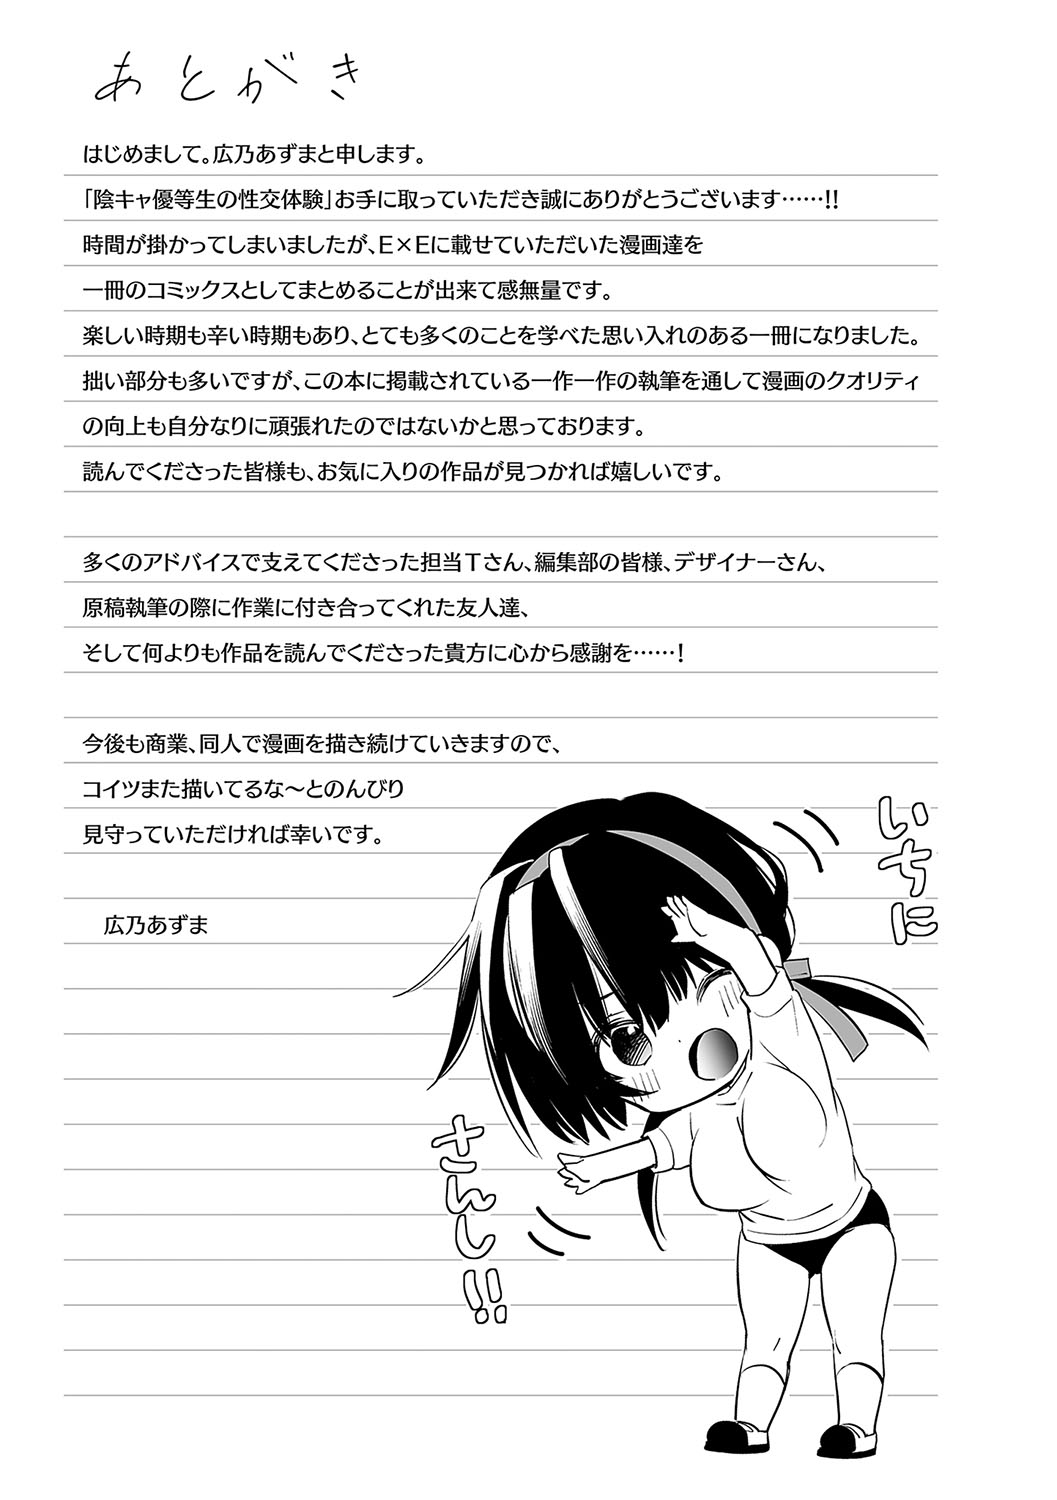 あとがき
はじめまして。広乃あずまと申します。
「陰キャ優等生の性交体験」お手に取っていただき誠にありがとうございます……!!
時間が掛かってしまいましたが、E×Eに載せていただいた漫画達を
一冊のコミックスとしてまとめることが出来て感無量です。
楽しい時期も辛い時期もあり、とても多くのことを学べた思い入れのある一冊になりました。
拙い部分も多いですが、この本に掲載されている一作一作の執筆を通して漫画のクオリティ
の向上も自分なりに頑張れたのではないかと思っております。
読んでくださった皆様も、お気に入りの作品が見つかれば嬉しいです。
多くのアドバイスで支えてくださった担当Tさん、編集部の皆様、デザイナーさん、
原稿執筆の際に作業に付き合ってくれた友人達、
そして何よりも作品を読んでくださった貴方に心から感謝を……!
今後も商業、同人で漫画を描き続けていきますので、
コイツまた描いてるな〜とのんびり
見守っていただければ幸いです。
広乃あずま
いちに
さんし!!